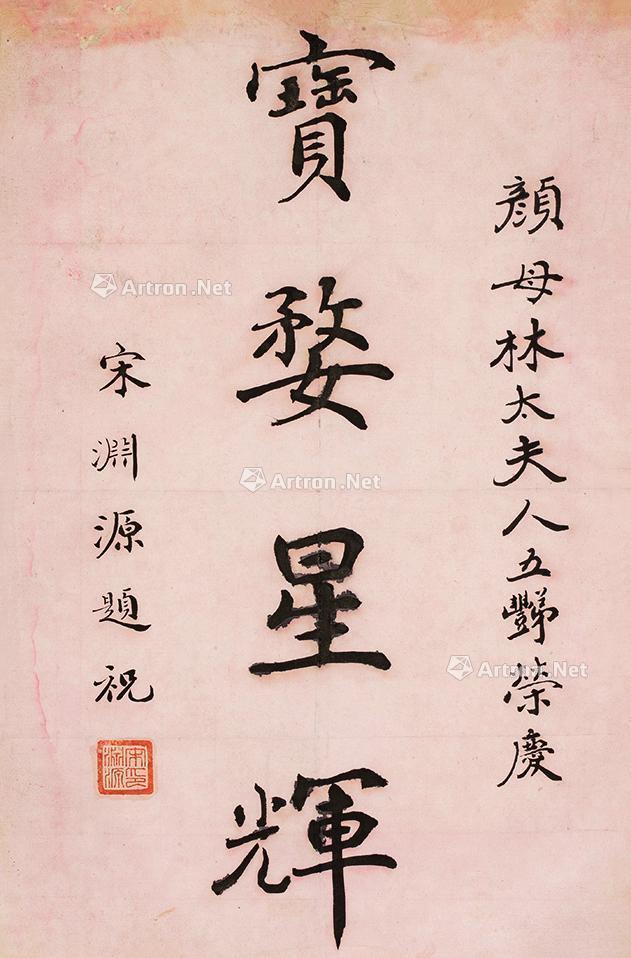 顏母林太夫人五豒榮慶
寶婺星輝
宋淵源題祝
宋淵源印
Artron.Net
Artron.Net
Artron.Net